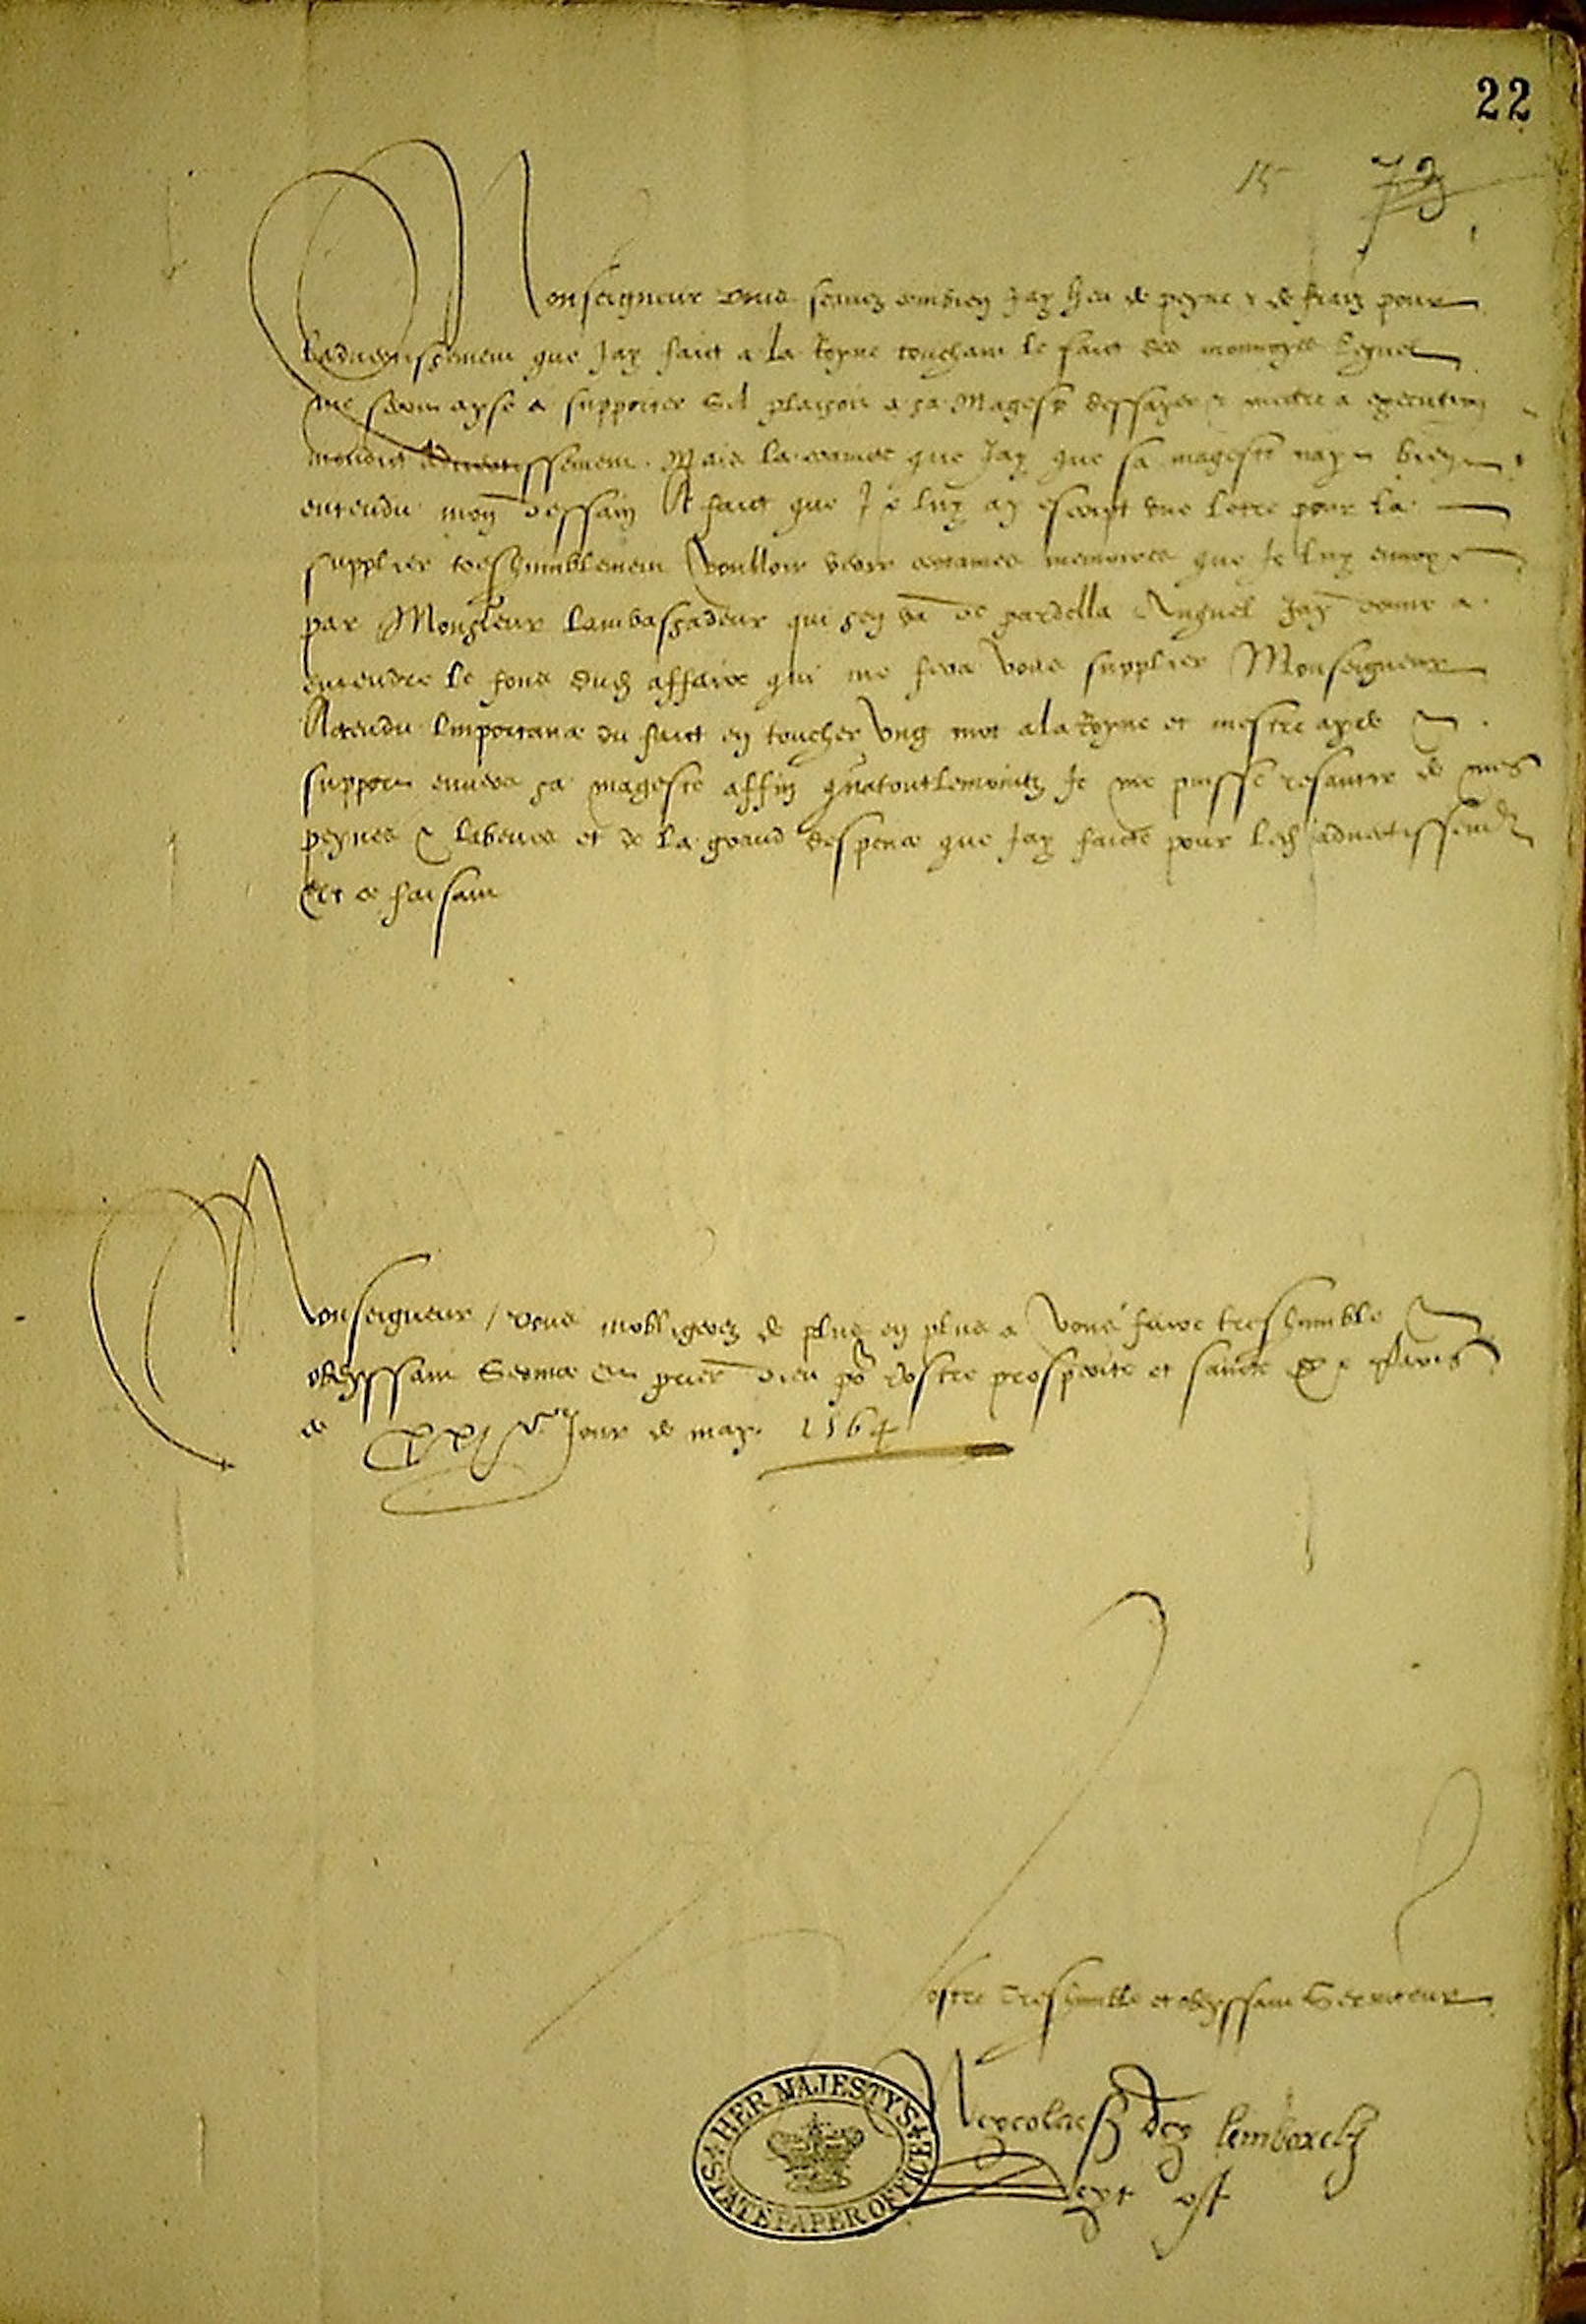 22
15 73
Monseigneur vous scavez combien Jay heu de peyne & de fraiz pour
Ladvertissement que Jay faict a la Royne touchant le faict des monnoyes Lequel
me seroit ayse a supporter sil plaisoit a sa Mageste dessayer & mectre a execution
mondit advertissement. Mais la craincte que Jay que sa mageste nayt bien
entendu mon dessain A faict que Je luy ay escript une lettre pour la
supplier treshumblement voulloir veoir certaines memoires que Je luy envoye
par Monsieur Lambassadeur qui sen va de pardella Auquel Jay donne a
entendre le fons dud affaire qui me fera vous supplier Monseigneur
Attendu limportance du faict en toucher ung mot a la Royne et mestre ayde &
support envers sa mageste affin quatoutlemoings Je me puisse resantir de mes
peynes & labeurs et de la grand despence que Jay faicte pour led advertissement
Et ce faisant
Monseigneur / vous mobligerez de plus en plus a vous faire treshumble &
obeyssant service Et prier dieu po vostre prosperite et sante De Paris
ce xxv Jour de may 1564
Vostre Treshumble et obeyssant Serviteur
HER MAJESTYS STATE PAPER OFFICE